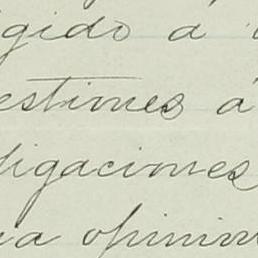 igido á
estiones á
ligaciones
na opinion